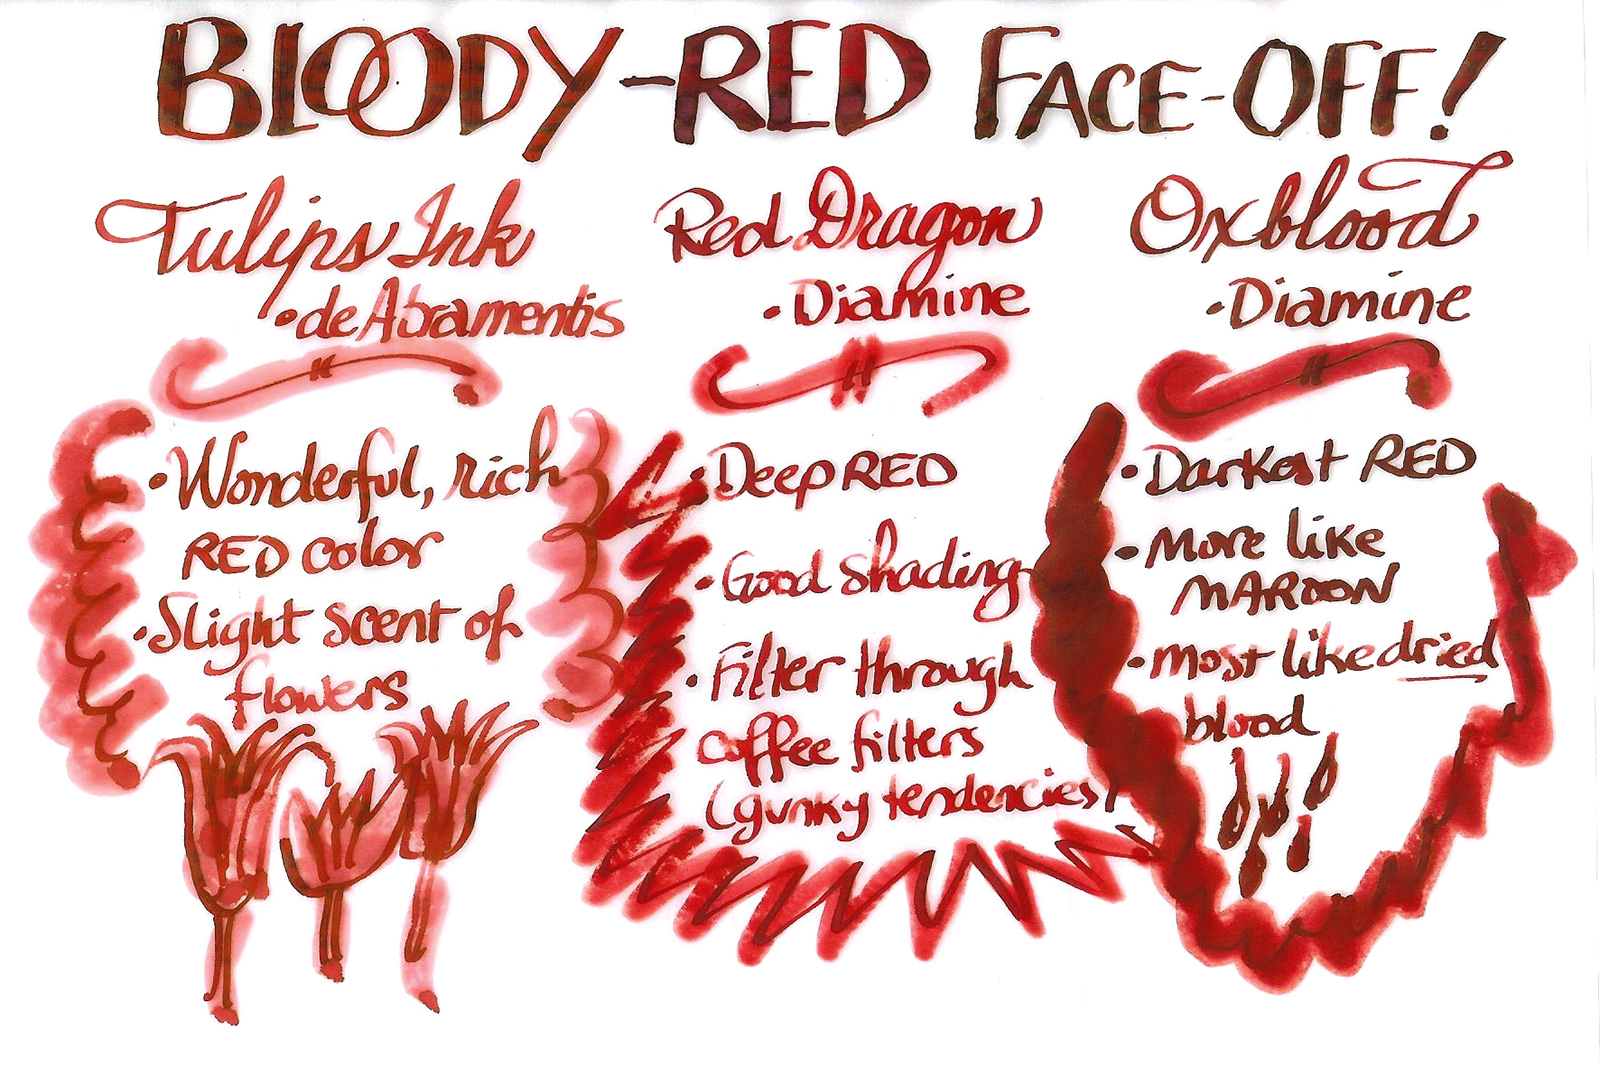 BLOODY-RED FACE-OFF!
Tulips Ink
•de Atramentis
•Wonderful, rich
RED color
•Slight scent of
flowers
Red Dragon
•Diamine
•Deep RED
•Good shading
•Filter through
coffee filters
(gunky tendencies)
Oxblood
•Diamine
•Darkest RED
•More like
MAROON
•most like dried
blood